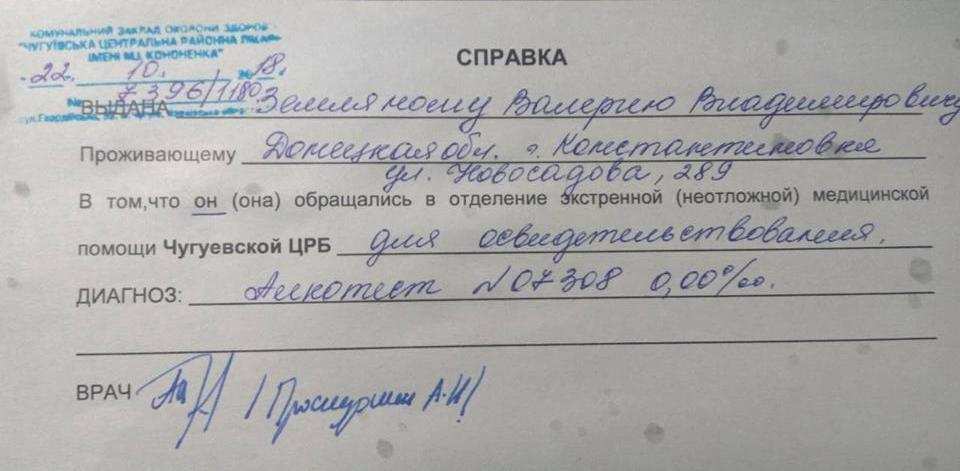 КОМУНАЛЬНИЙ ЗАКЛАД ОХОРОНИ ЗДОРОВ'Я
"ЧУГУЇВСЬКА ЦЕНТРАЛЬНА РАЙОННА ЛІКАРНЯ
ІМЕНІ М.І. КОНОНЕНКА"
22. 10. 2018.
№ 7396/1180
СПРАВКА
ВЫДАНА Земляному Валерию Владимировичу
Проживающему Донецкая обл. г. Константиновка
ул. Новосадова, 289
В том,что он (она) обращались в отделение экстренной (неотложной) медицинской
помощи Чугуевской ЦРБ для освидетельствования.
ДИАГНОЗ: Алкотест №07308 0,00‰.
ВРАЧ